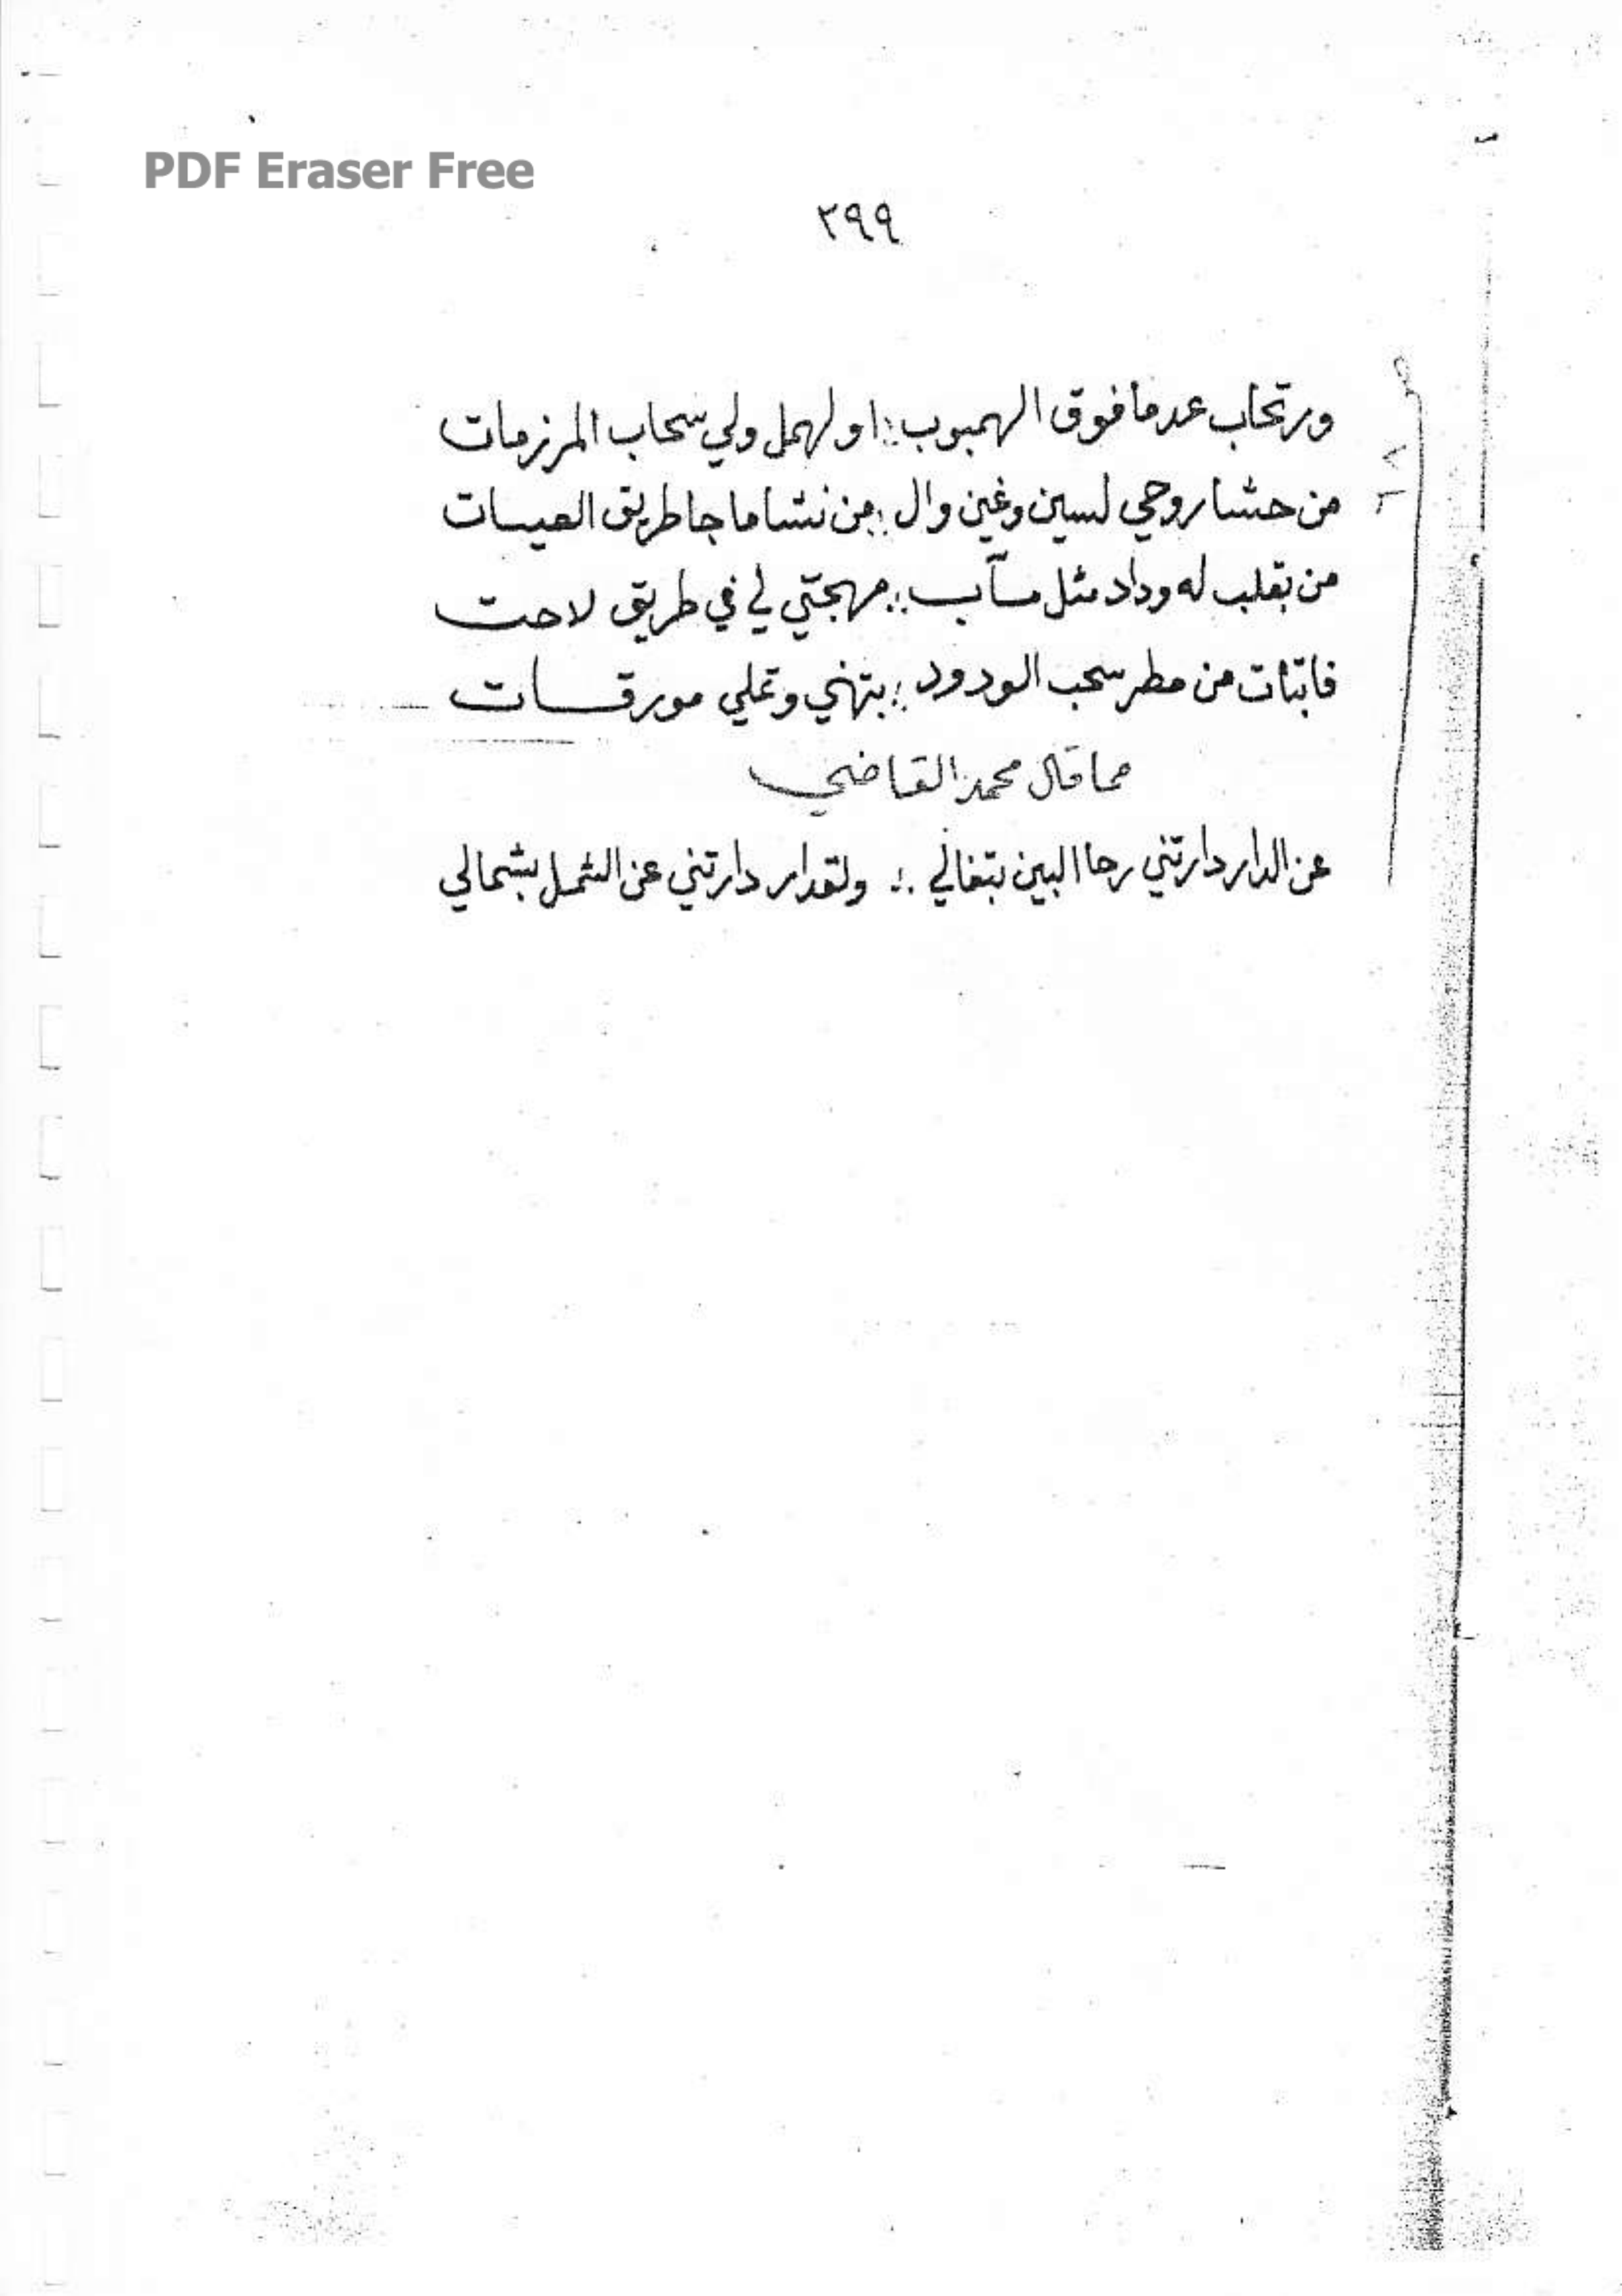 PDF Eraser Free
٢٩٩
ورتحاب عدما فوق الهبوب :: او لهمل ولي سحاب المرزمات
من حشا روحي لسين وغين وال :: من نشا ما جا طريق العيسات
من بقلب له وداد مثل مسآب :: مهجتي لي في طريق لاحت
فابتات من مطر سحب الودود :: بتهني وتملي مورقسات
مما قال محمد القاضي
عن الدار دارتني رحا البين بتغالي ∴ ولقدار دارتني عن الشمل بشمالي